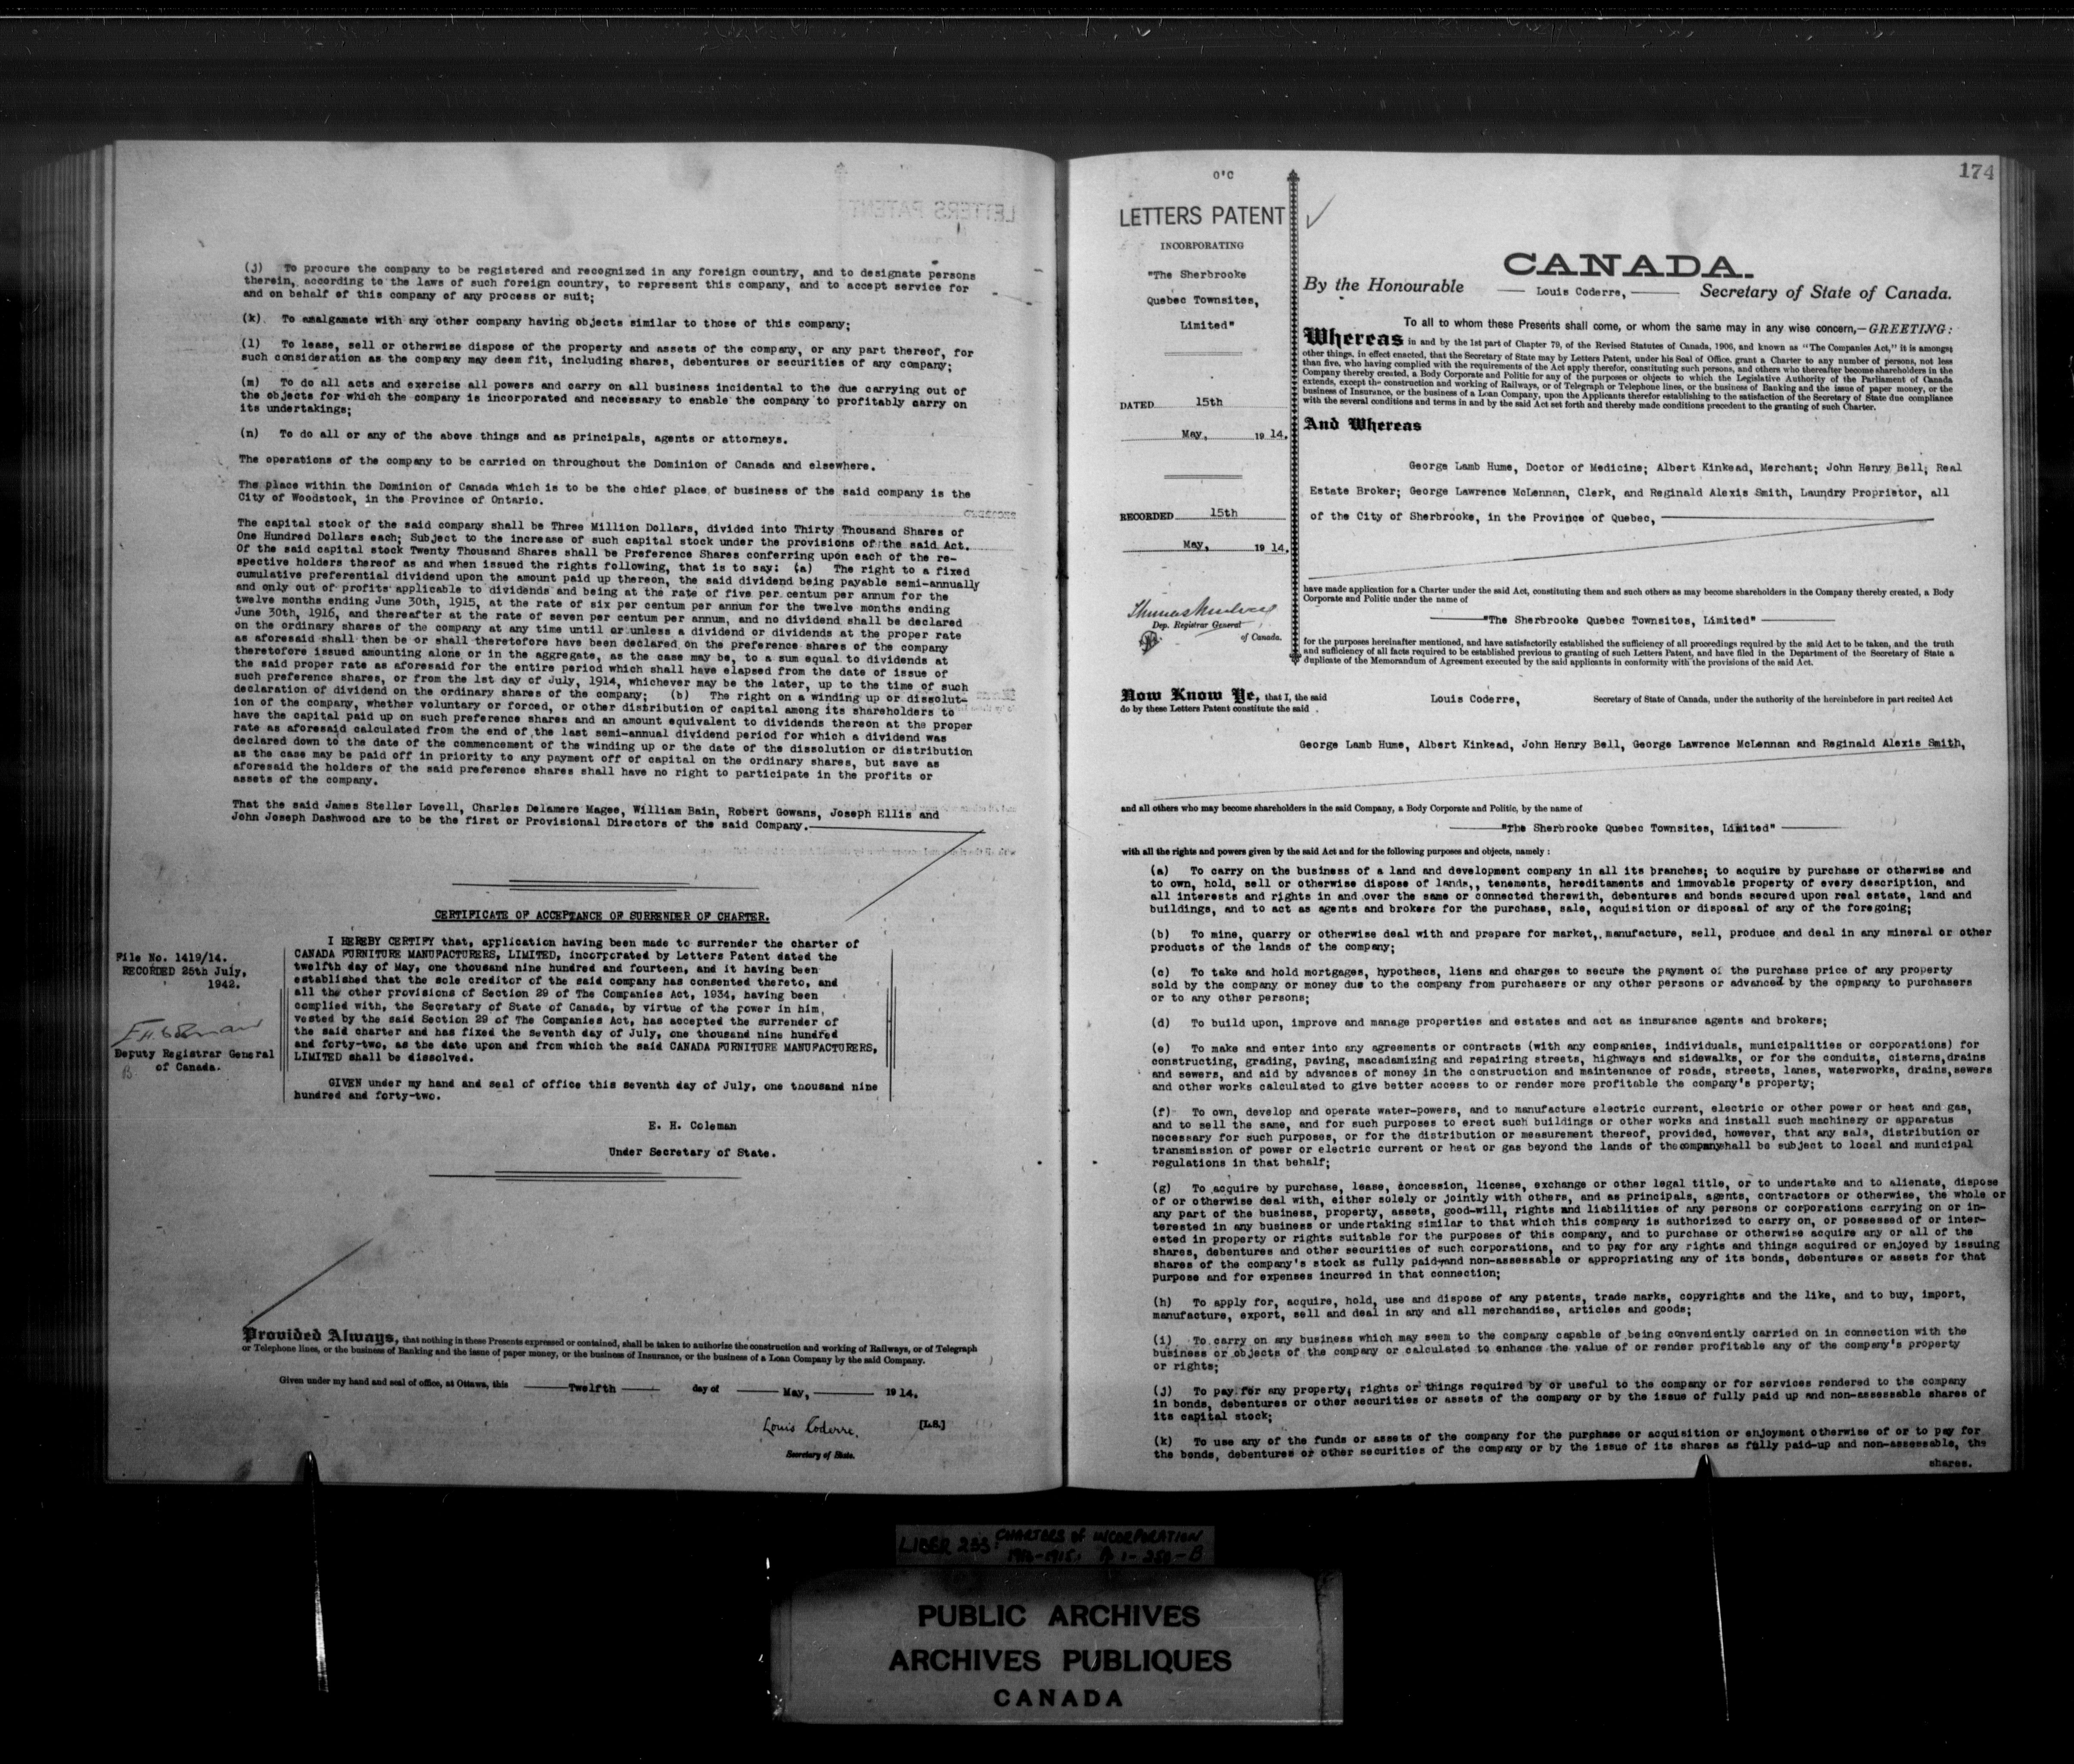 (j) To procure the company to be registered and recognized in any foreign country, and to designate persons
therein, according to the laws of such foreign country, to represent this company, and to accept service for
and on behalf of this company of any process or suit;
(k) To amalgamate with any other company having objects similar to those of this company;
(l) To lease, sell or otherwise dispose of the property and assets of the company, or any part thereof, for
such consideration as the company may deem fit, including shares, debentures or securities of any company;
(m) To do all acts and exercise all powers and carry on all business incidental to the due carrying out of
the objects for which the company is incorporated and necessary to enable the company to profitably carry on
its undertakings;
(n) To do all or any of the above things and as principals, agents or attorneys.
The operations of the company to be carried on throughout the Dominion of Canada and elsewhere.
The place within the Dominion of Canada which is to be the chief place of business of the said company is the
City of Woodstock, in the Province of Ontario.
The capital stock of the said company shall be Three Million Dollars, divided into Thirty Thousand Shares of
One Hundred Dollars each; Subject to the increase of such capital stock under the provisions of the said Act.
Of the said capital stock Twenty Thousand Shares shall be Preference Shares conferring upon each of the re-
spective holders thereof as and when issued the rights following, that is to say: (a) The right to a fixed
cumulative preferential dividend upon the amount paid up thereon, the said dividend being payable semi-annually
and only out of profits applicable to dividends and being at the rate of five per centum per annum for the
twelve months ending June 30th, 1915, at the rate of six per centum per annum for the twelve months ending
June 30th, 1916, and thereafter at the rate of seven per centum per annum, and no dividend shall be declared
on the ordinary shares of the company at any time until or unless a dividend or dividends at the proper rate
as aforesaid shall then be or shall theretofore have been declared on the preference shares of the company
theretofore issued amounting alone or in the aggregate, as the case may be, to a sum equal to dividends at
the said proper rate as aforesaid for the entire period which shall have elapsed from the date of issue of
such preference shares, or from the 1st day of July, 1914, whichever may be the later, up to the time of such
declaration of dividend on the ordinary shares of the company; (b) The right on a winding up or dissolut-
ion of the company, whether voluntary or forced, or other distribution of capital among its shareholders to
have the capital paid up on such preference shares and an amount equivalent to dividends thereon at the proper
rate as aforesaid calculated from the end of the last semi-annual dividend period for which a dividend was
declared down to the date of the commencement of the winding up or the date of the dissolution or distribution
as the case may be paid off in priority to any payment off of capital on the ordinary shares, but save as
aforesaid the holders of the said preference shares shall have no right to participate in the profits or
assets of the company.
That the said James Steller Lovell, Charles Delamere Magee, William Bain, Robert Gowans, Joseph Ellis and
John Joseph Dashwood are to be the first or Provisional Directors of the said Company.
CERTIFICATE OF ACCEPTANCE OF SURRENDER OF CHARTER.
File No. 1419/14.
RECORDED 25th July,
1942.
Deputy Registrar General
of Canada.
I HEREBY CERTIFY that, application having been made to surrender the charter of
CANADA FURNITURE MANUFACTURERS, LIMITED, incorporated by Letters Patent dated the
twelfth day of May, one thousand nine hundred and fourteen, and it having been
established that the sole creditor of the said company has consented thereto, and
all the other provisions of Section 29 of The Companies Act, 1934, having been
complied with, the Secretary of State of Canada, by virtue of the power in him,
vested by the said Section 29 of The Companies Act, has accepted the surrender of
the said charter and has fixed the seventh day of July, one thousand nine hundred
and forty-two, as the date upon and from which the said CANADA FURNITURE MANUFACTURERS,
LIMITED shall be dissolved.
GIVEN under my hand and seal of office this seventh day of July, one thousand nine
hundred and forty-two.
E. H. Coleman
Under Secretary of State.
Provided Always, that nothing in these Presents expressed or contained, shall be taken to authorize the construction and working of Railways, or of Telegraph
or Telephone lines, or the business of Banking and the issue of paper money, or the business of Insurance, or the business of a Loan Company by the said Company.
Given under my hand and seal of office, at Ottawa, this Twelfth day of May, 1914.
Louis Coderre. [L.S.]
Secretary of State.
174
O'C
LETTERS PATENT
INCORPORATING
"The Sherbrooke
Quebec Townsites,
Limited"
DATED 15th
May, 1914.
RECORDED 15th
May, 1914.
Dep. Registrar General
of Canada.
CANADA.
By the Honourable Louis Coderre, Secretary of State of Canada.
To all to whom these Presents shall come, or whom the same may in any wise concern,—GREETING:
Whereas in and by the 1st part of Chapter 79, of the Revised Statutes of Canada, 1906, and known as "The Companies Act," it is amongst
other things, in effect enacted, that the Secretary of State may by Letters Patent, under his Seal of Office, grant a Charter to any number of persons, not less
than five, who having complied with the requirements of the Act apply therefor, constituting such persons, and others who thereafter become shareholders in the
Company thereby created, a Body Corporate and Politic for any of the purposes or objects to which the Legislative Authority of the Parliament of Canada
extends, except the construction and working of Railways, or of Telegraph or Telephone lines, or the business of Banking and the issue of paper money, or the
business of Insurance, or the business of a Loan Company, upon the Applicants therefor establishing to the satisfaction of the Secretary of State due compliance
with the several conditions and terms in and by the said Act set forth and thereby made conditions precedent to the granting of such Charter.
And Whereas
George Lamb Hume, Doctor of Medicine; Albert Kinkead, Merchant; John Henry Bell, Real
Estate Broker; George Lawrence McLennan, Clerk, and Reginald Alexis Smith, Laundry Proprietor, all
of the City of Sherbrooke, in the Province of Quebec,
have made application for a Charter under the said Act, constituting them and such others as may become shareholders in the Company thereby created, a Body
Corporate and Politic under the name of
"The Sherbrooke Quebec Townsites, Limited"
for the purposes hereinafter mentioned, and have satisfactorily established the sufficiency of all proceedings required by the said Act to be taken, and the truth
and sufficiency of all facts required to be established previous to granting of such Letters Patent, and have filed in the Department of the Secretary of State a
duplicate of the Memorandum of Agreement executed by the said applicants in conformity with the provisions of the said Act.
Now Know Ye, that I, the said Louis Coderre, Secretary of State of Canada, under the authority of the hereinbefore in part recited Act
do by these Letters Patent constitute the said
George Lamb Hume, Albert Kinkead, John Henry Bell, George Lawrence McLennan and Reginald Alexis Smith,
and all others who may become shareholders in the said Company, a Body Corporate and Politic, by the name of
"The Sherbrooke Quebec Townsites, Limited"
with all the rights and powers given by the said Act and for the following purposes and objects, namely :
(a) To carry on the business of a land and development company in all its branches; to acquire by purchase or otherwise and
to own, hold, sell or otherwise dispose of lands,, tenements, hereditaments and immovable property of every description, and
all interests and rights in and over the same or connected therewith, debentures and bonds secured upon real estate, land and
buildings, and to act as agents and brokers for the purchase, sale, acquisition or disposal of any of the foregoing;
(b) To mine, quarry or otherwise deal with and prepare for market,. manufacture, sell, produce and deal in any mineral or other
products of the lands of the company;
(c) To take and hold mortgages, hypothecs, liens and charges to secure the payment of the purchase price of any property
sold by the company or money due to the company from purchasers or any other persons or advanced by the company to purchasers
or to any other persons;
(d) To build upon, improve and manage properties and estates and act as insurance agents and brokers;
(e) To make and enter into any agreements or contracts (with any companies, individuals, municipalities or corporations) for
constructing, grading, paving, macadamizing and repairing streets, highways and sidewalks, or for the conduits, cisterns,drains
and sewers, and aid by advances of money in the construction and maintenance of roads, streets, lanes, waterworks, drains,sewers
and other works calculated to give better access to or render more profitable the company's property;
(f) To own, develop and operate water-powers, and to manufacture electric current, electric or other power or heat and gas,
and to sell the same, and for such purposes to erect such buildings or other works and install such machinery or apparatus
necessary for such purposes, or for the distribution or measurement thereof, provided, however, that any sale, distribution or
transmission of power or electric current or heat or gas beyond the lands of thecompanyshall be subject to local and municipal
regulations in that behalf;
(g) To acquire by purchase, lease, concession, license, exchange or other legal title, or to undertake and to alienate, dispose
of or otherwise deal with, either solely or jointly with others, and as principals, agents, contractors or otherwise, the whole or
any part of the business, property, assets, good-will, rights and liabilities of any persons or corporations carrying on or in-
terested in any business or undertaking similar to that which this company is authorized to carry on, or possessed of or inter-
ested in property or rights suitable for the purposes of this company, and to purchase or otherwise acquire any or all of the
shares, debentures and other securities of such corporations, and to pay for any rights and things acquired or enjoyed by issuing
shares of the company's stock as fully paid-and non-assessable or appropriating any of its bonds, debentures or assets for that
purpose and for expenses incurred in that connection;
(h) To apply for, acquire, hold, use and dispose of any patents, trade marks, copyrights and the like, and to buy, import,
manufacture, export, sell and deal in any and all merchandise, articles and goods;
(i) To carry on any business which may seem to the company capable of being conveniently carried on in connection with the
business or objects of the company or calculated to enhance the value of or render profitable any of the company's property
or rights;
(j) To pay for any property, rights or things required by or useful to the company or for services rendered to the company
in bonds, debentures or other securities or assets of the company or by the issue of fully paid up and non-assessable shares of
its capital stock;
(k) To use any of the funds or assets of the company for the purchase or acquisition or enjoyment otherwise of or to pay for
the bonds, debentures or other securities of the company or by the issue of its shares as fully paid-up and non-assessable, the
shares.
LIBER 233: CHARTERS of INCORPORATION
PUBLIC ARCHIVES
ARCHIVES PUBLIQUES
CANADA